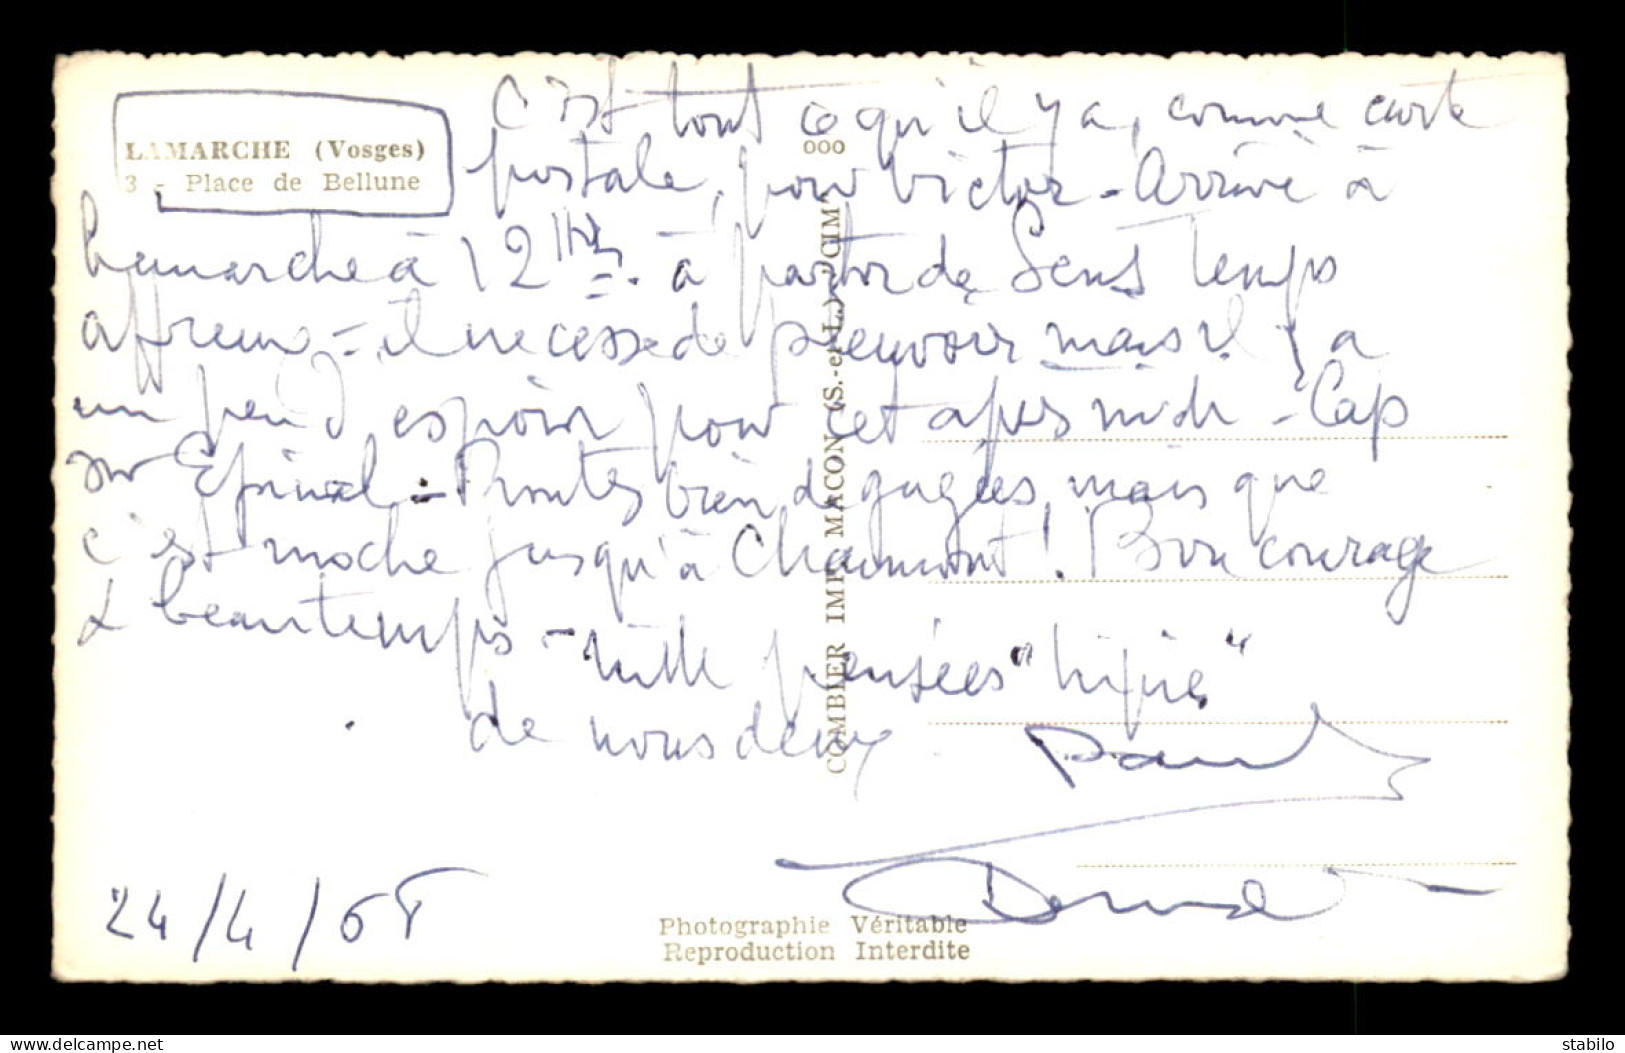 LAMARCHE (Vosges)
3 - Place de Bellune
C'est tout ce qu'il y a, comme carte
postale, pour Victor - Arrivé à
Lamarche à 12 - à partir de Sens Temps
affreux - il ne cesse de pleuvoir mais il y a
un peu d'espoir pour cet après midi - Cap
sur Epinal - Routes bien dégagées, mais que
c'est moche jusqu'à Chaumont ! Bon courage
& beau temps - mille pensées
de nous deux Paul
24/4/68
COMBIER IMP. MACON (S.-et-L.) "CIM"
Photographie Véritable
Reproduction Interdite
Delcampe.net
stabilo